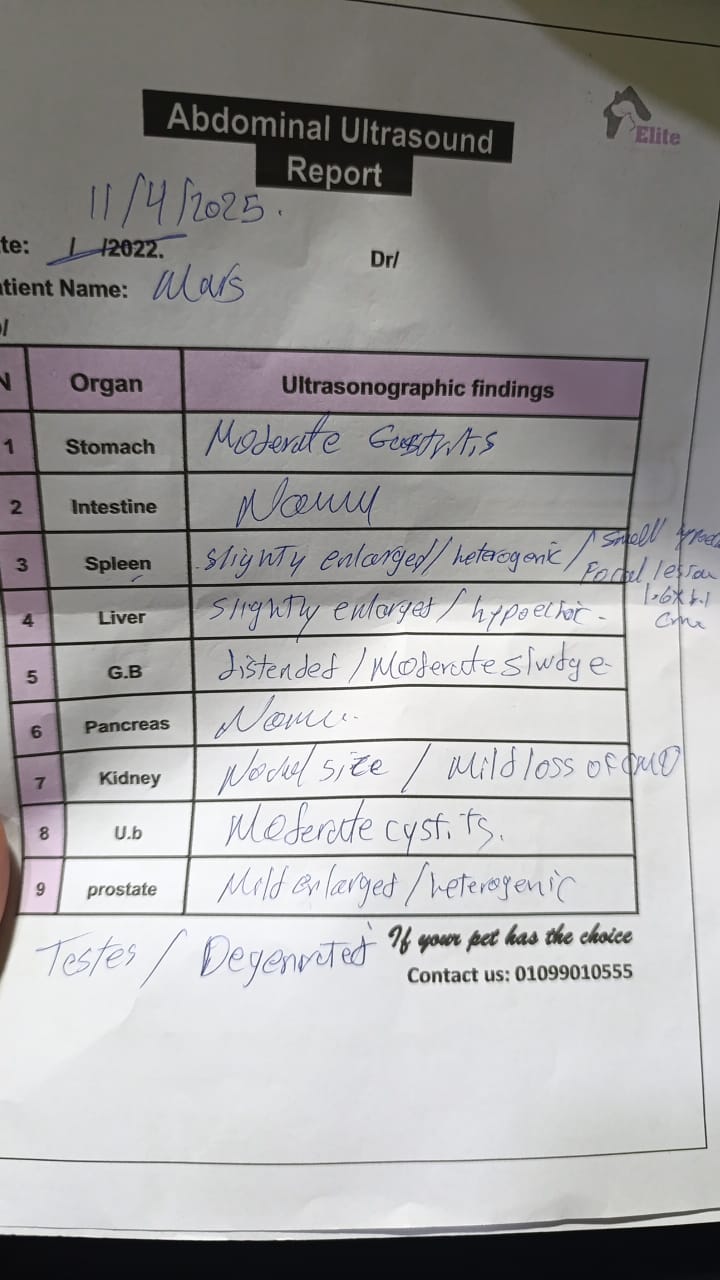 Abdominal Ultrasound
Report
Elite
11/4/2025.
te: / /2022.
Dr/
tient Name: Mars
/
N Organ Ultrasonographic findings
1 Stomach Moderate Gastritis
2 Intestine
3 Spleen slighty enlarged / heterogenic / small
Focal lesson
1.6X1.1
cm
4 Liver Slightly enlarged / hypoechoic.
5 G.B distended / Moderate sludge
6 Pancreas
7 Kidney size / Mild loss of CMD
8 U.b Moderate cystits.
9 prostate Mild enlarged / heterogenic
Testes / Degenrated
If your pet has the choice
Contact us: 01099010555